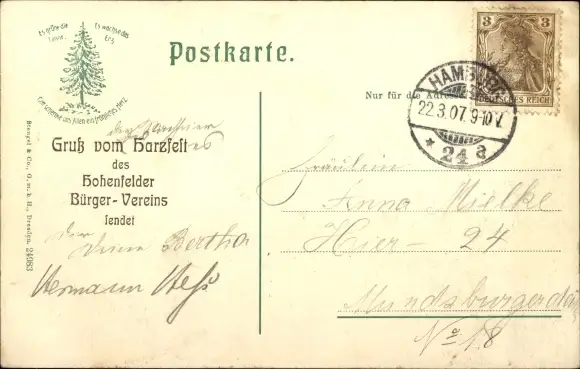 Es grüne die Tanne, Es wachse das Erz
Gott schenke uns Allen ein fröhliches Herz.
Postkarte.
3
DEUTSCHES REICH
HAMBURG
22.3.07. 9-10 V.
* 24 a
Nur für die Adresse
Gruß vom Harzfest
des
Hohenfelder
Bürger-Vereins
sendet
Deine Bertha
Hermann
Fräulein
Anna Mielke
Hier - 24
Mundsburgerda
No 18
G.m.b.H., Dresden. 24083